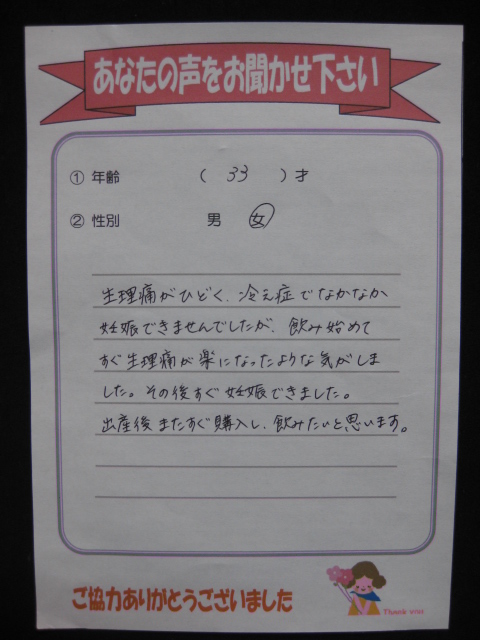 あなたの声をお聞かせ下さい
① 年齢 ( 33 ) 才
② 性別 男 女
生理痛がひどく、冷え症でなかなか
妊娠できませんでしたが、飲み始めて
すぐ生理痛が楽になったような気がしま
した。その後すぐ妊娠できました。
出産後またすぐ購入し、飲みたいと思います。
ご協力ありがとうございました
Thank you